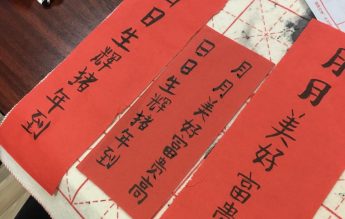 月月美好富
月月美好富贵高
日日生辉猪年到
日日生辉猪年到